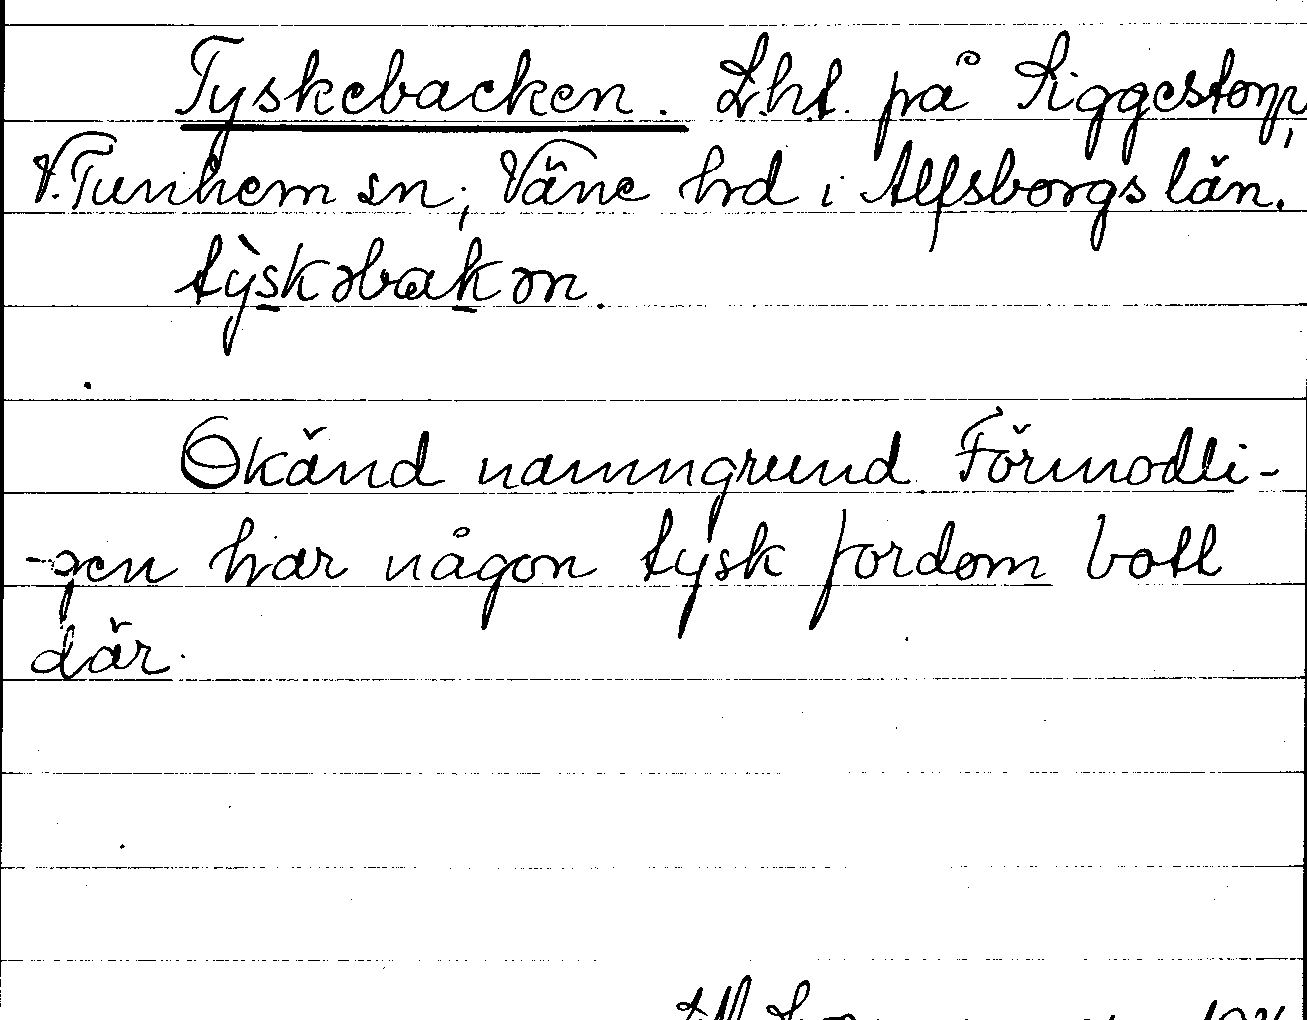 Tyskebacken. Lht. på Siggestorp,
V. Tunhem sn, Väne hd i Älfsborgs län.
tỳskəbakən.
Okänd namngrund. Förmodli-
-gen har någon tysk fordom bott
där.